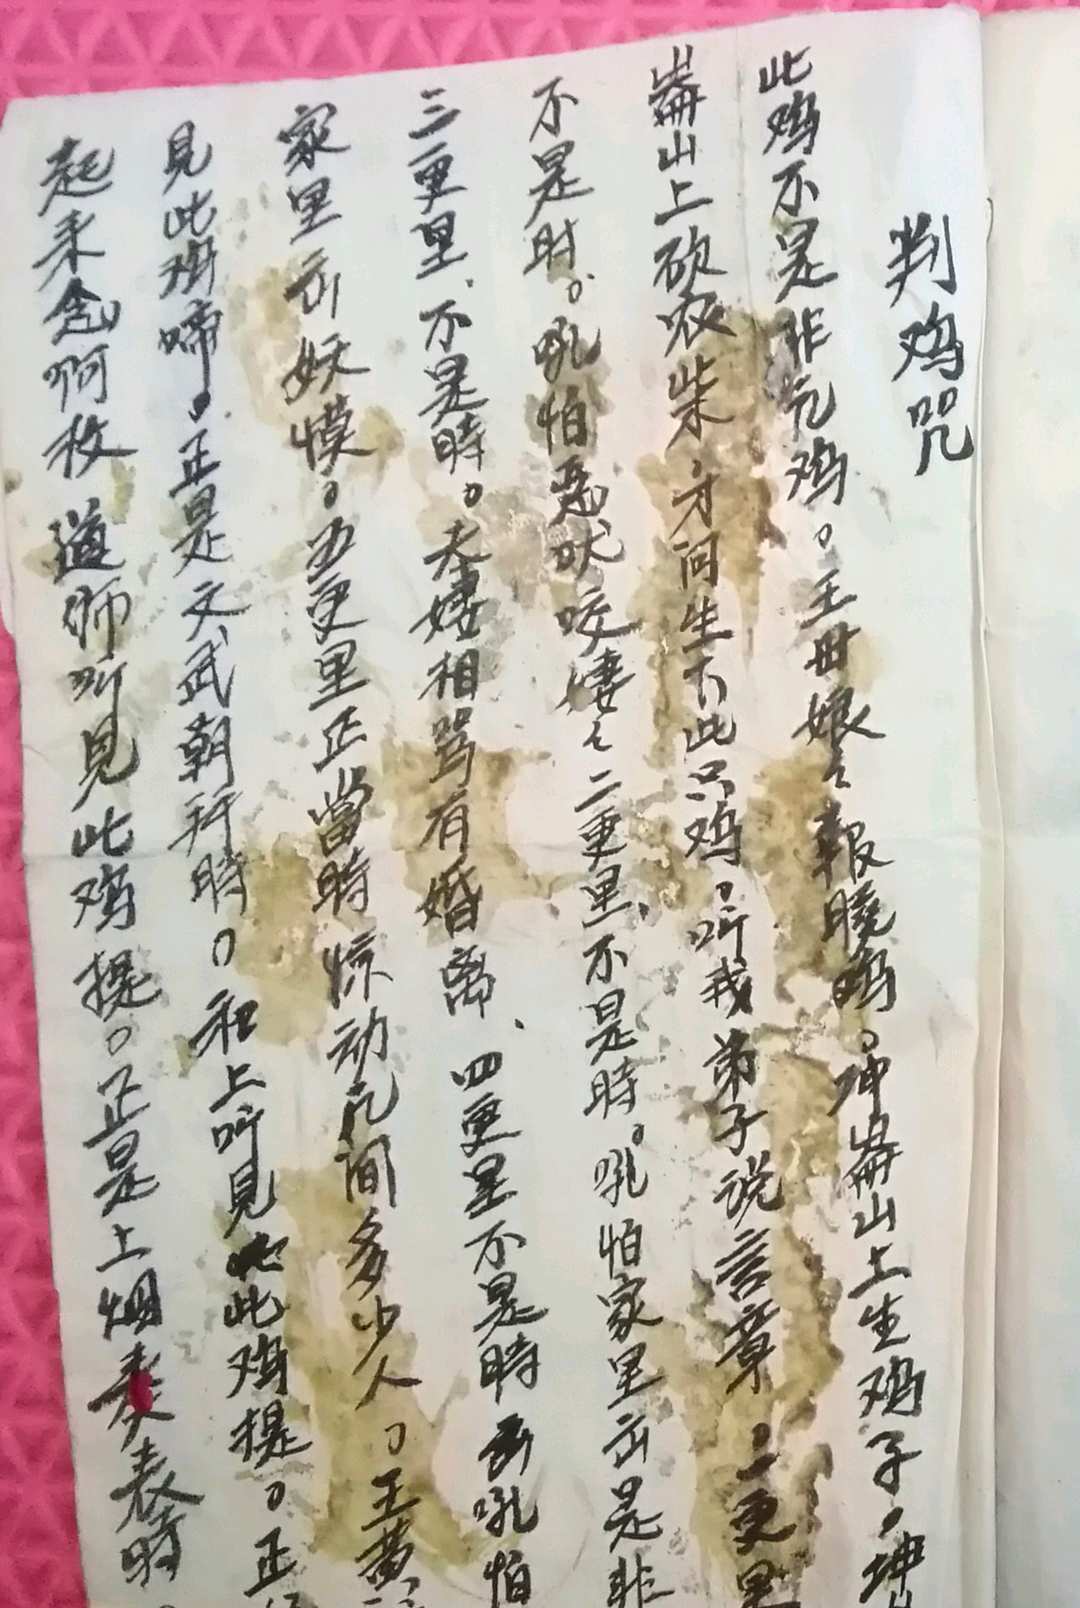 判鸡咒
此鸡不是非凡鸡。王母娘々報曉鸡。坤崙山上生鸡子。坤
崙山上砍农柴，才间生下此只鸡。听我弟子说言章。一更里
不是时。吼怕恶吠咬凄々二更里、不是時。吼怕家里出是非
三更里、不是時。夫妻相骂有婚离、四更里不是時吼怕
家里出妖模。五更里正當時惊动凡间多少人。王黄
見此鸡啼。正是文武朝拜時。和上听見此鸡提。正
起来念啊枚道师听見此鸡提。正是上烟奏表時